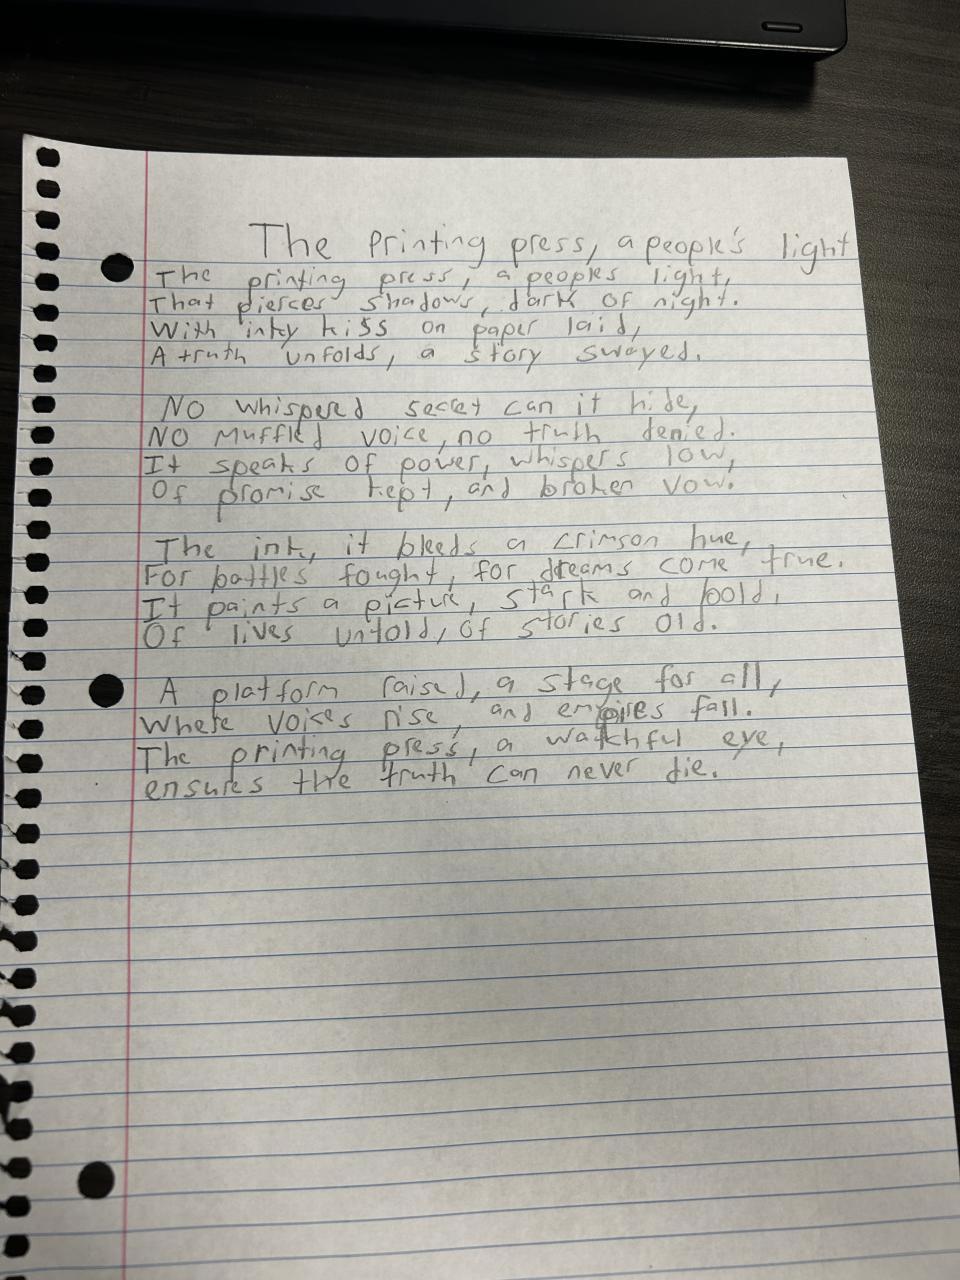 The Printing press, a people's light
The printing press, a peoples light,
That pierces shadows, dark of night.
With inky kiss on paper laid,
A truth unfolds, a story swayed.
No whispered secret can it hide,
No muffled voice, no truth denied.
It speaks of power, whispers low,
Of promise kept, and broken vow.
The ink, it bleeds a crimson hue,
For battles fought, for dreams come true.
It paints a picture, stark and bold,
Of lives untold, of stories old.
A platform raised, a stage for all,
Where voices rise, and empires fall.
The printing press, a watchful eye,
ensures the truth can never die.